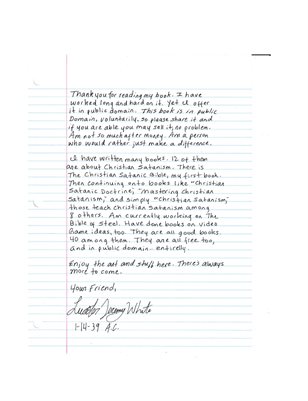 Thank you for reading my book. I have
worked long and hard on it. Yet I offer
it in public domain. This book is in public
Domain, voluntarily, so please share it and
if you are able you may sell it, no problem.
Am not so much after money. Am a person
who would rather just make a difference.
I have written many books. 12 of them
are about Christian Satanism. There is
The Christian Satanic Bible, my first book.
Then continuing onto books like "Christian
Satanic Doctrine," "Mastering Christian
Satanism," and simply "Christian Satanism,"
those teach Christian Satanism among
8 others. Am currently working on The
Bible of Steel. Have done books on video
Game ideas, too. They are all good books.
40 among them. They are all free too,
and in public domain - entirely.
Enjoy the art and stuff here. There's always
more to come.
Your Friend,
Jeremy White
1-14-39 A.C.